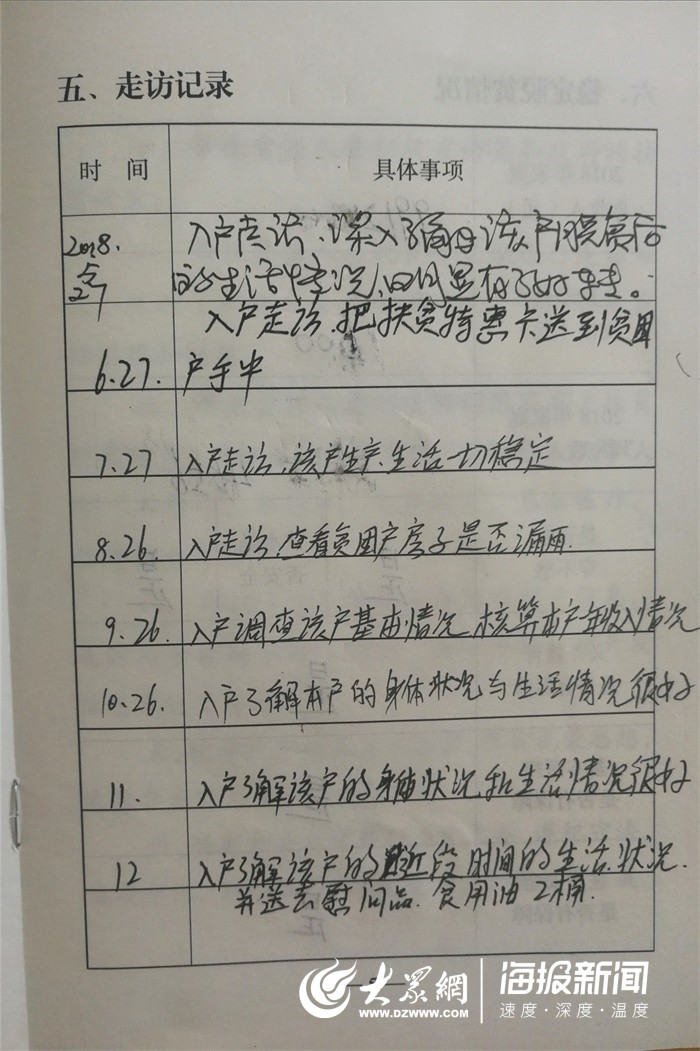 五、走访记录
时 间 具体事项
2018. 入户走访、深入了解该户脱贫后
5 的生活情况,明显有了好转。
27
入户走访,把扶贫特惠卡送到贫困
6.27. 户手中
7.27 入户走访,该户生产、生活一切稳定
8.26. 入户走访,查看贫困户房子是否漏雨.
9.26. 入户调查该户基本情况,核算本户年收入情况
10.26. 入户了解本户的身体状况与生活情况很好
11. 入户了解该户的身体状况和生活情况很好
12 入户了解该户的近段时间的生活状况.
并送去慰问品.食用油2桶.
大众網 海报新闻
www.DZWWW.com 速度·深度·温度